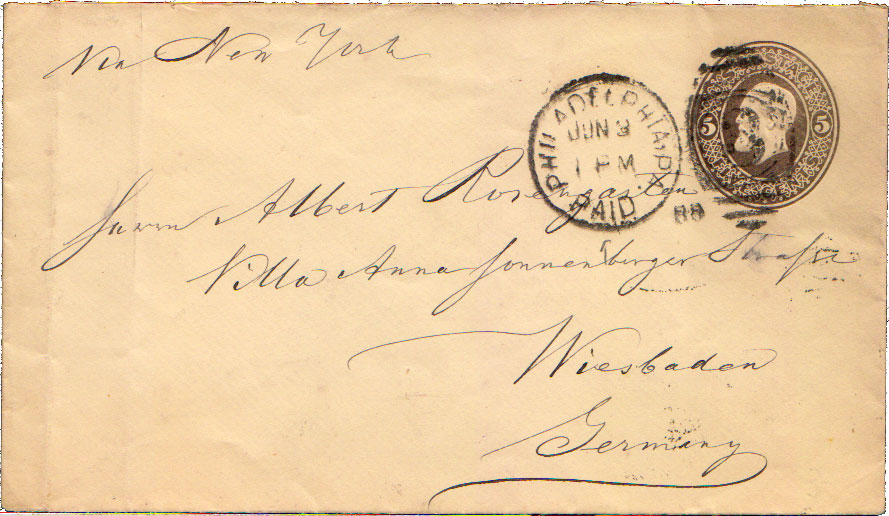 Via New York
PHILADELPHIA, PA.
JUN 3
1 PM
PAID
88
5 5
Herrn Albert Rosengarten
Villa Anna Sonnenberger Straße
Wiesbaden
Germany